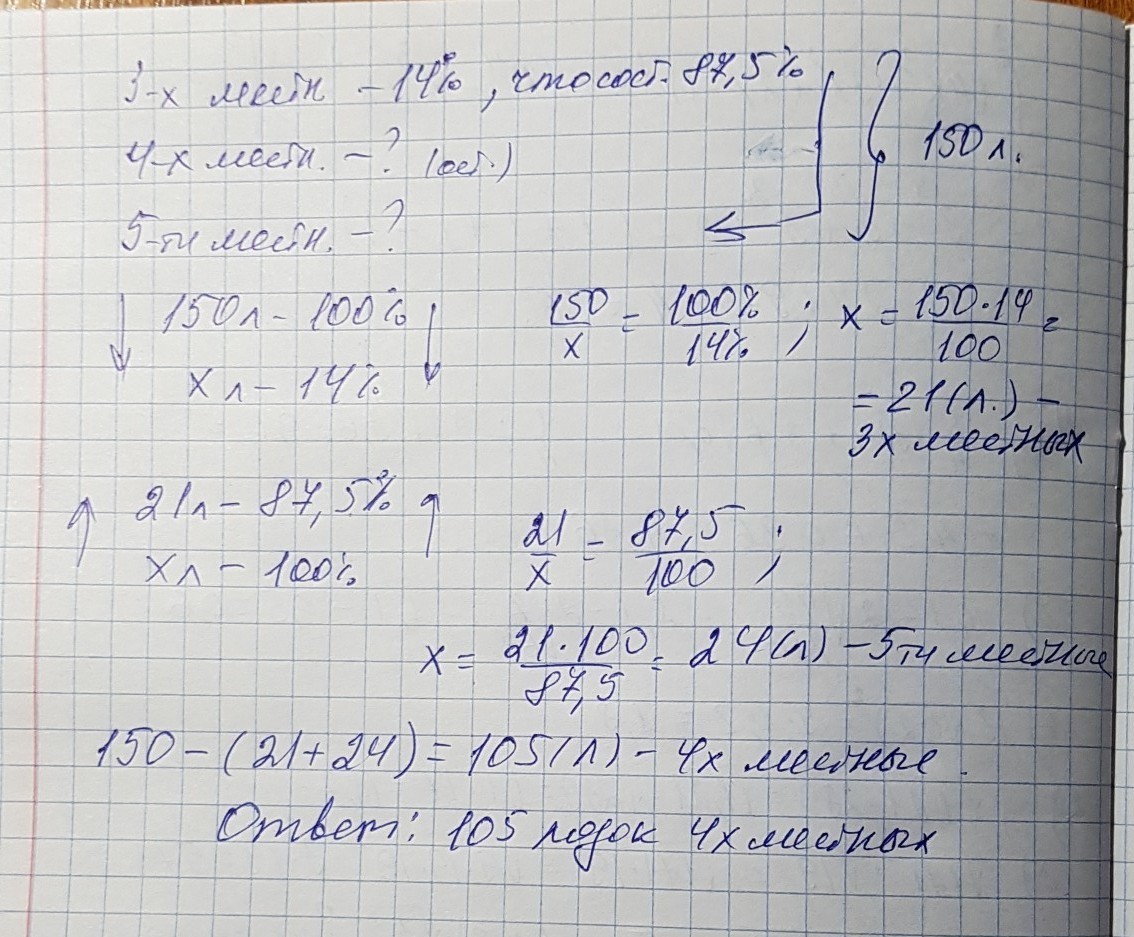 3-х местн - 14%, что сост. 87,5%
4-х местн. - ? (ост.)
150 л.
5-ти местн. - ?
150л - 100%
x л - 14%
150/x = 100%/14% ; x = 150·14/100 =
= 21 (л.) -
3х местных
21л - 87,5%
x л - 100%
21/x = 87,5/100 ;
x = 21·100/87,5 = 24(л) - 5ти местные
150 - (21+24) = 105(л) - 4х местные.
Ответ: 105 лодок 4х местных